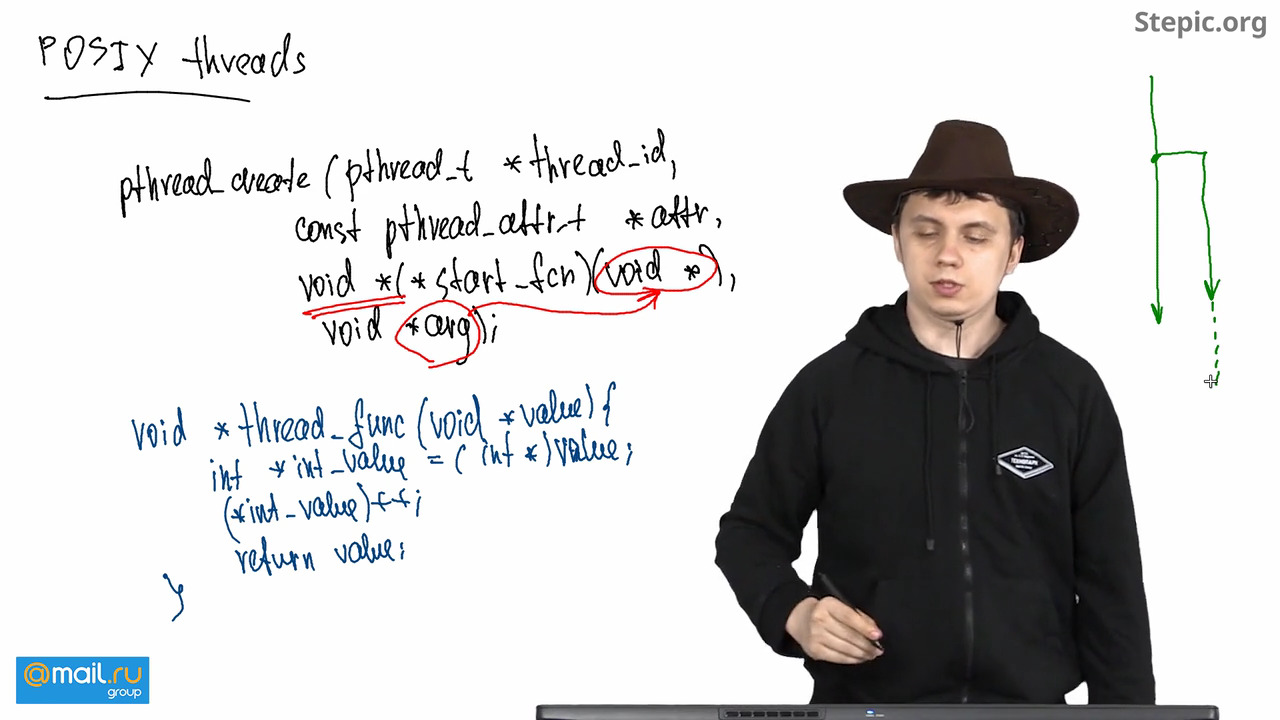 Stepic.org
POSIX threads
pthread_create (pthread_t *thread_id,
const pthread_attr_t *attr,
void *(*start_fcn)(void *),
void *arg);
void *thread_func (void *value) {
int *int_value = (int *)value;
(*int_value)++;
return value;
}
@mail.ru
group